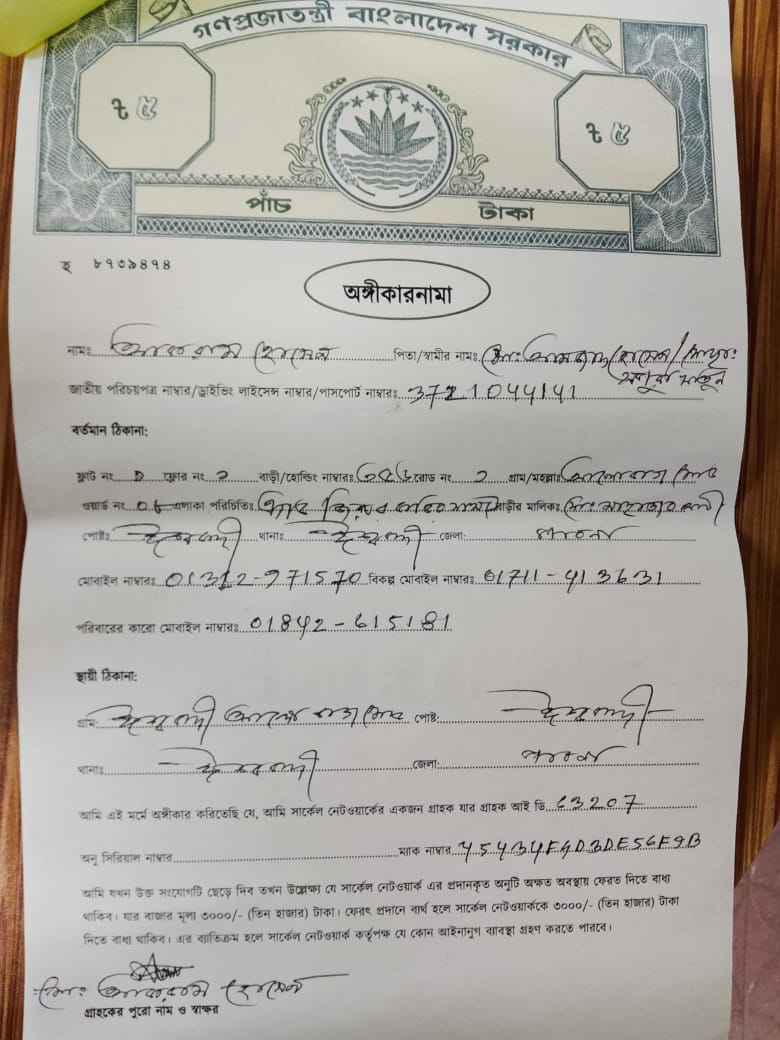 গণপ্রজাতন্ত্রী বাংলাদেশ সরকার
৳ ৫ ৳ ৫
পাঁচ টাকা
হ ৮৭৩৯৪৭৪
অঙ্গীকারনামা
নামঃ হোসেন পিতা/স্বামীর নামঃ মোঃ হোসেন/
জাতীয় পরিচয়পত্র নাম্বার/ড্রাইভিং লাইসেন্স নাম্বার/পাসপোর্ট নাম্বারঃ 3721044141
বর্তমান ঠিকানা:
ফ্লাট নং ফ্লোর নং ২ বাড়ী/হোল্ডিং নাম্বারঃ রোড নং গ্রাম/মহল্লাঃ
ওয়ার্ড নং এলাকা পরিচিতিঃ বাড়ীর মালিকঃ
পোষ্টঃ ঈশ্বরদী থানাঃ ঈশ্বরদী জেলা: পাবনা
মোবাইল নাম্বারঃ 01312-971570 বিকল্প মোবাইল নাম্বারঃ 01711-413631
পরিবারের কারো মোবাইল নাম্বারঃ 01842-615181
স্থায়ী ঠিকানা:
গ্রাম: ঈশ্বরদী পোষ্ট: ঈশ্বরদী
থানাঃ ঈশ্বরদী জেলা: পাবনা
আমি এই মর্মে অঙ্গীকার করিতেছি যে, আমি সার্কেল নেটওয়ার্কের একজন গ্রাহক যার গ্রাহক আই ডি 63207
অনু সিরিয়াল নাম্বার ম্যাক নাম্বার
আমি যখন উক্ত সংযোগটি ছেড়ে দিব তখন উল্লেক্ষ্য যে সার্কেল নেটওয়ার্ক এর প্রদানকৃত অনুটি অক্ষত অবস্থায় ফেরত দিতে বাধ্য
থাকিব। যার বাজার মূল্য ৩০০০/- (তিন হাজার) টাকা। ফেরৎ প্রদানে ব্যর্থ হলে সার্কেল নেটওয়ার্ককে ৩০০০/- (তিন হাজার) টাকা
দিতে বাধ্য থাকিব। এর ব্যাতিক্রম হলে সার্কেল নেটওয়ার্ক কর্তৃপক্ষ যে কোন আইনানুগ ব্যবস্থা গ্রহণ করতে পারবে।
মোঃ হোসেন
গ্রাহকের পুরো নাম ও স্বাক্ষর